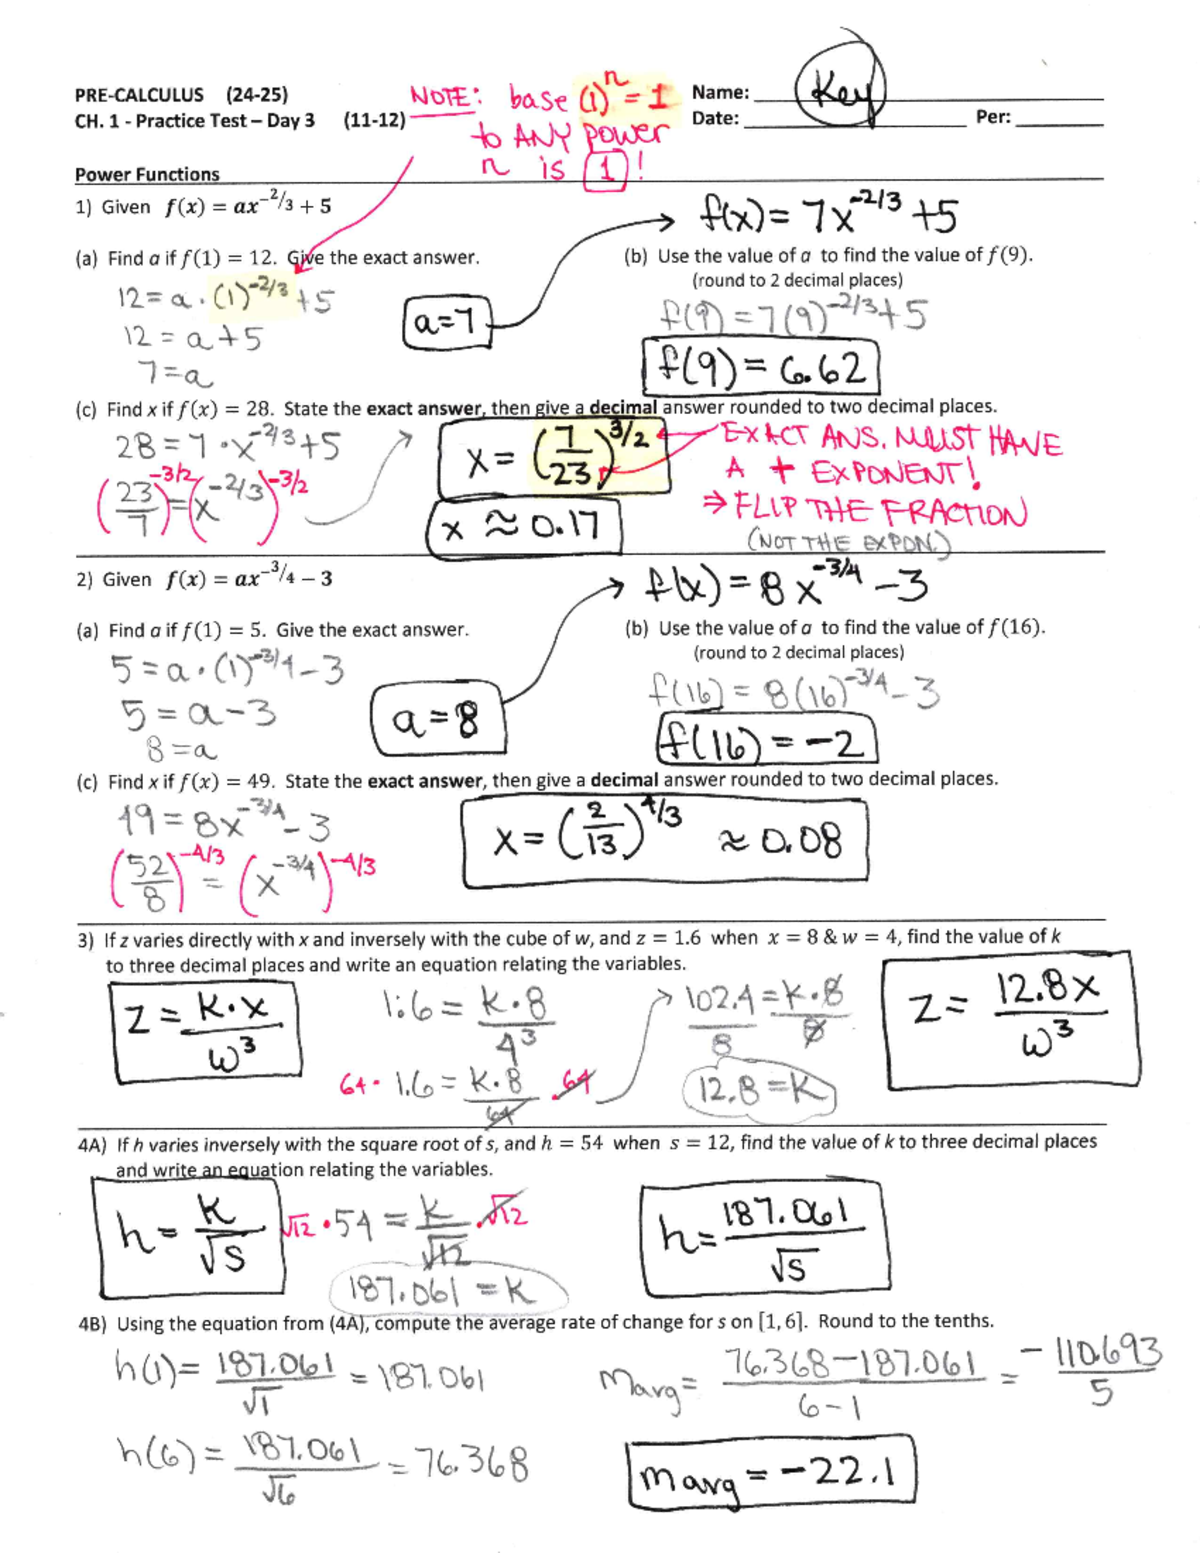 PRE-CALCULUS (24-25)
CH. 1 - Practice Test – Day 3 (11-12)
NOTE: base (1)^n = 1
to ANY power
n is 1!
Name: Key
Date: Per:
Power Functions
1) Given f(x) = ax^-2/3 + 5
f(x) = 7x^-2/3 + 5
(a) Find a if f(1) = 12. Give the exact answer.
12 = a · (1)^-2/3 + 5
12 = a + 5
7 = a
a = 7
(b) Use the value of a to find the value of f(9).
(round to 2 decimal places)
f(9) = 7(9)^-2/3 + 5
f(9) = 6.62
(c) Find x if f(x) = 28. State the exact answer, then give a decimal answer rounded to two decimal places.
28 = 7 · x^-2/3 + 5
(23/7)^-3/2 = (x^-2/3)^-3/2
x = (7/23)^3/2
x ≈ 0.17
EXACT ANS. MUST HAVE
A + EXPONENT!
⇒ FLIP THE FRACTION
(NOT THE EXPON.)
2) Given f(x) = ax^-3/4 – 3
f(x) = 8x^-3/4 - 3
(a) Find a if f(1) = 5. Give the exact answer.
5 = a · (1)^-3/4 - 3
5 = a - 3
8 = a
a = 8
(b) Use the value of a to find the value of f(16).
(round to 2 decimal places)
f(16) = 8(16)^-3/4 - 3
f(16) = -2
(c) Find x if f(x) = 49. State the exact answer, then give a decimal answer rounded to two decimal places.
49 = 8x^-3/4 - 3
(52/8)^-4/3 = (x^-3/4)^-4/3
x = (2/13)^4/3 ≈ 0.08
3) If z varies directly with x and inversely with the cube of w, and z = 1.6 when x = 8 & w = 4, find the value of k
to three decimal places and write an equation relating the variables.
z = k·x/w^3
1.6 = k·8/4^3
64· 1.6 = k·8/64 ·64
102.4/8 = k·8/8
12.8 = k
z = 12.8x/w^3
4A) If h varies inversely with the square root of s, and h = 54 when s = 12, find the value of k to three decimal places
and write an equation relating the variables.
h = k/√s
√12 · 54 = k/√12 · √12
187.061 = k
h = 187.061/√s
4B) Using the equation from (4A), compute the average rate of change for s on [1, 6]. Round to the tenths.
h(1) = 187.061/√1 = 187.061
h(6) = 187.061/√6 = 76.368
marg = 76.368 - 187.061/6 - 1 = -110.693/5
marg = -22.1